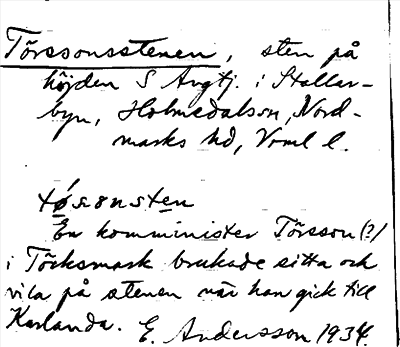 Törssonsstenen, sten på
höjden S Angtj. i Stallar-
byn, Holmedalssn, Nord-
marks hd, Vrml l.
tǿsɷnsten
En komminister Törsson (?)
i Töcksmark brukade sitta och
vila på stenen när han gick till
Karlanda. E. Andersson 1934.